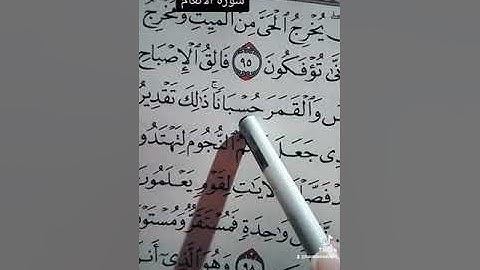 سورة الأنعام
يُخْرِجُ ٱلْحَىَّ مِنَ ٱلْمَيِّتِ وَمُخْرِجُ
تُؤْفَكُونَ ٩٥ فَالِقُ ٱلْإِصْبَاحِ
وَٱلْقَمَرَ حُسْبَانًا ۚ ذَٰلِكَ تَقْدِيرُ
جَعَلَ ٱلنُّجُومَ لِتَهْتَدُوا
ٱلْءَايَٰتِ لِقَوْمٍ يَعْلَمُونَ
وَٰحِدَةٍ فَمُسْتَقَرٌّ وَمُسْتَوْ
٩٨ وَهُوَ ٱلَّذِىٓ أَنز